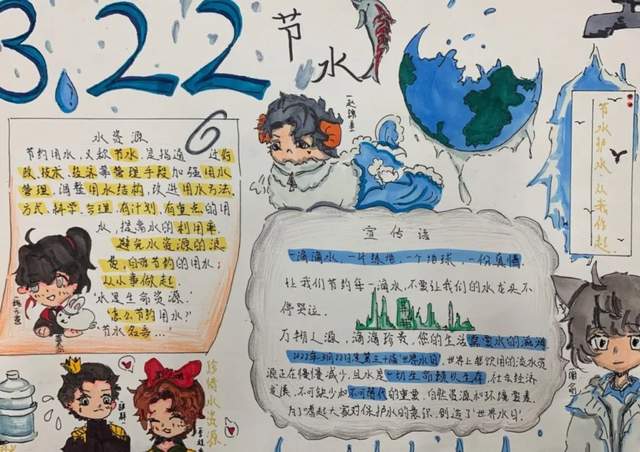 3.22
节水
水资源
节约用水，又称节水，是指通过行
政、技术、经济等管理手段加强用水
管理，调整用水结构，改进用水方法、
方式，科学、合理、有计划、有重点的用
水，提高水的利用率，
避免水资源的浪
费，
从小事做起，
"水是生命资源，
怎么节约用水？"
珍惜水资源
宣传语
一滴滴水，一片绿荫，一个地球，一份真情
让我们节约每一滴水，不要让我们的水龙头不
停哭泣。
万物人源，滴滴珍贵，您的生活
世界上能饮用的淡水资
源正在慢慢减少，且水是一切生命赖以生存，社会经济
发展，不可缺少和不可替代的重要自然资源和环境要素，
为了唤起大家对保护水的意识，创造了"世界水日"。
节水护水，从我做起